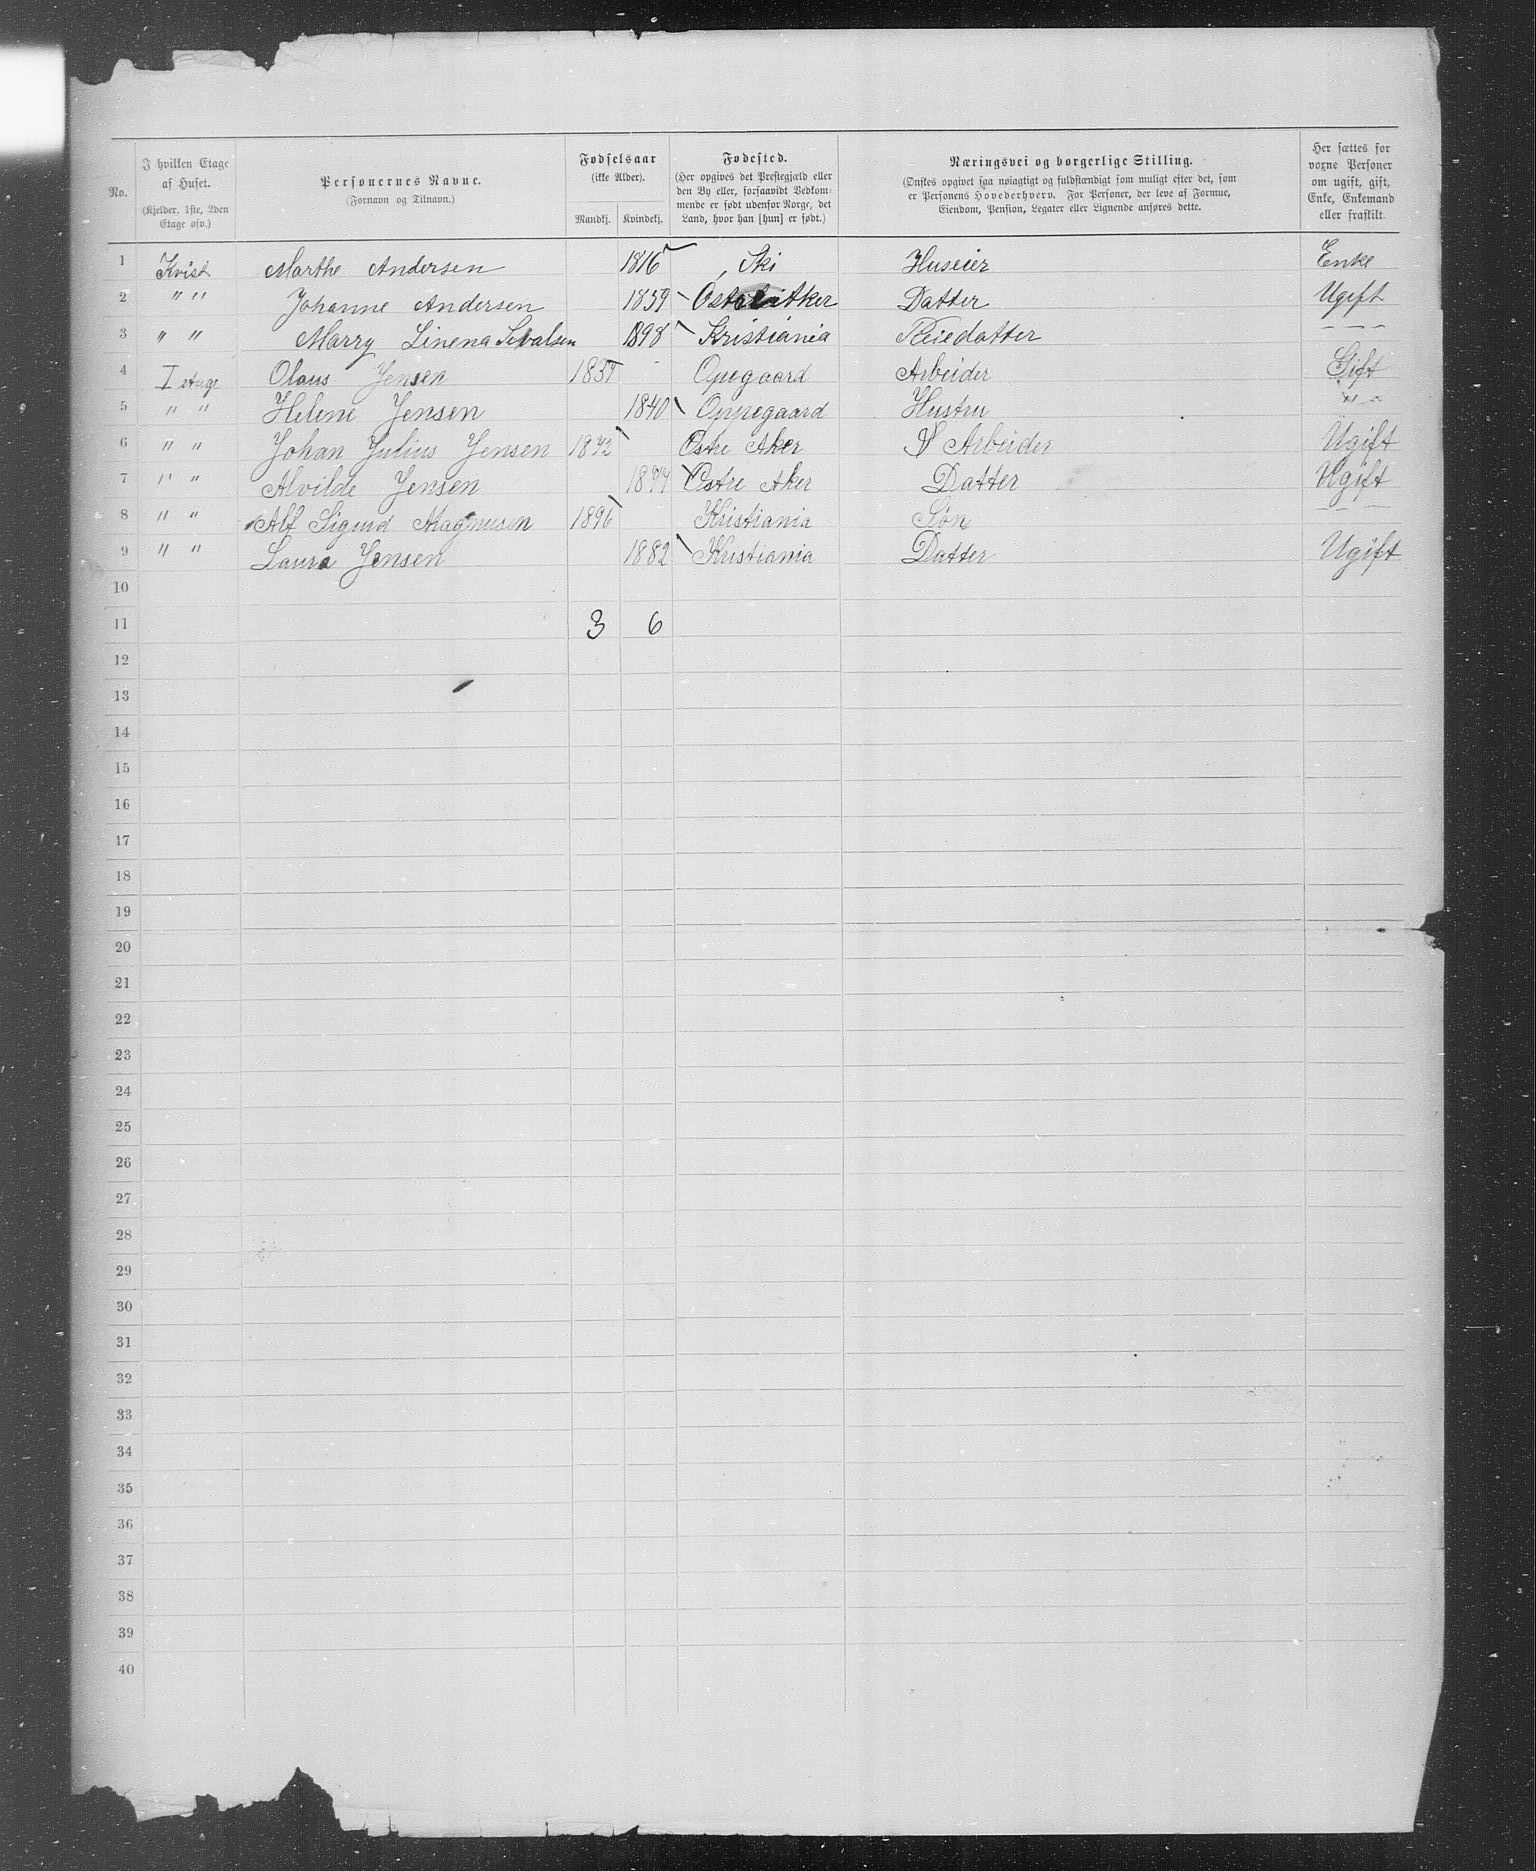 No.
I hvilken Etage af Huset.
(Kjelder, 1ste, 2den Etage osv.)
Personernes Navne.
(Fornavn og Tilnavn.)
Fødselsaar
(ikke Alder).
Mandkj. Kvindekj.
Fødested.
(Her opgives det Prestegjæld eller
den By eller, forsaavidt Vedkom-
mende er født udenfor Norge, det
Land, hvor han [hun] er født.)
Næringsvei og borgerlige Stilling.
(Ønskes opgivet saa nøiagtigt og fuldstændigt som muligt efter det, som
er Personens Hovederhverv. For Personer, der leve af Formue,
Eiendom, Pension, Legater eller Lignende anføres dette.
Her sættes for
voxne Personer
om ugift, gift,
Enke, Enkemand
eller fraskilt.
1 Kvist Marthe Andersen 1816 Ski Huseier Enke
2 " " Johanne Andersen 1859 Aker Datter Ugift
3 " " Marry Linena 1898 Kristiania Pleiedatter - - -
4 I etage Olaus Jensen 1837 Opegaard Arbeider Gift
5 " " Helene Jensen 1840 Oppegaard Hustru " -
6 " " Johan Julius Jensen 1872 Østre Aker Arbeider Ugift
7 " " Alvilde Jensen 1874 Østre Aker Datter Ugift
8 " " Alf Sigurd Magnusen 1896 Kristiania Søn - - -
9 " " Laura Jensen 1882 Kristiania Datter Ugift
10
11 3 6
12
13
14
15
16
17
18
19
20
21
22
23
24
25
26
27
28
29
30
31
32
33
34
35
36
37
38
39
40